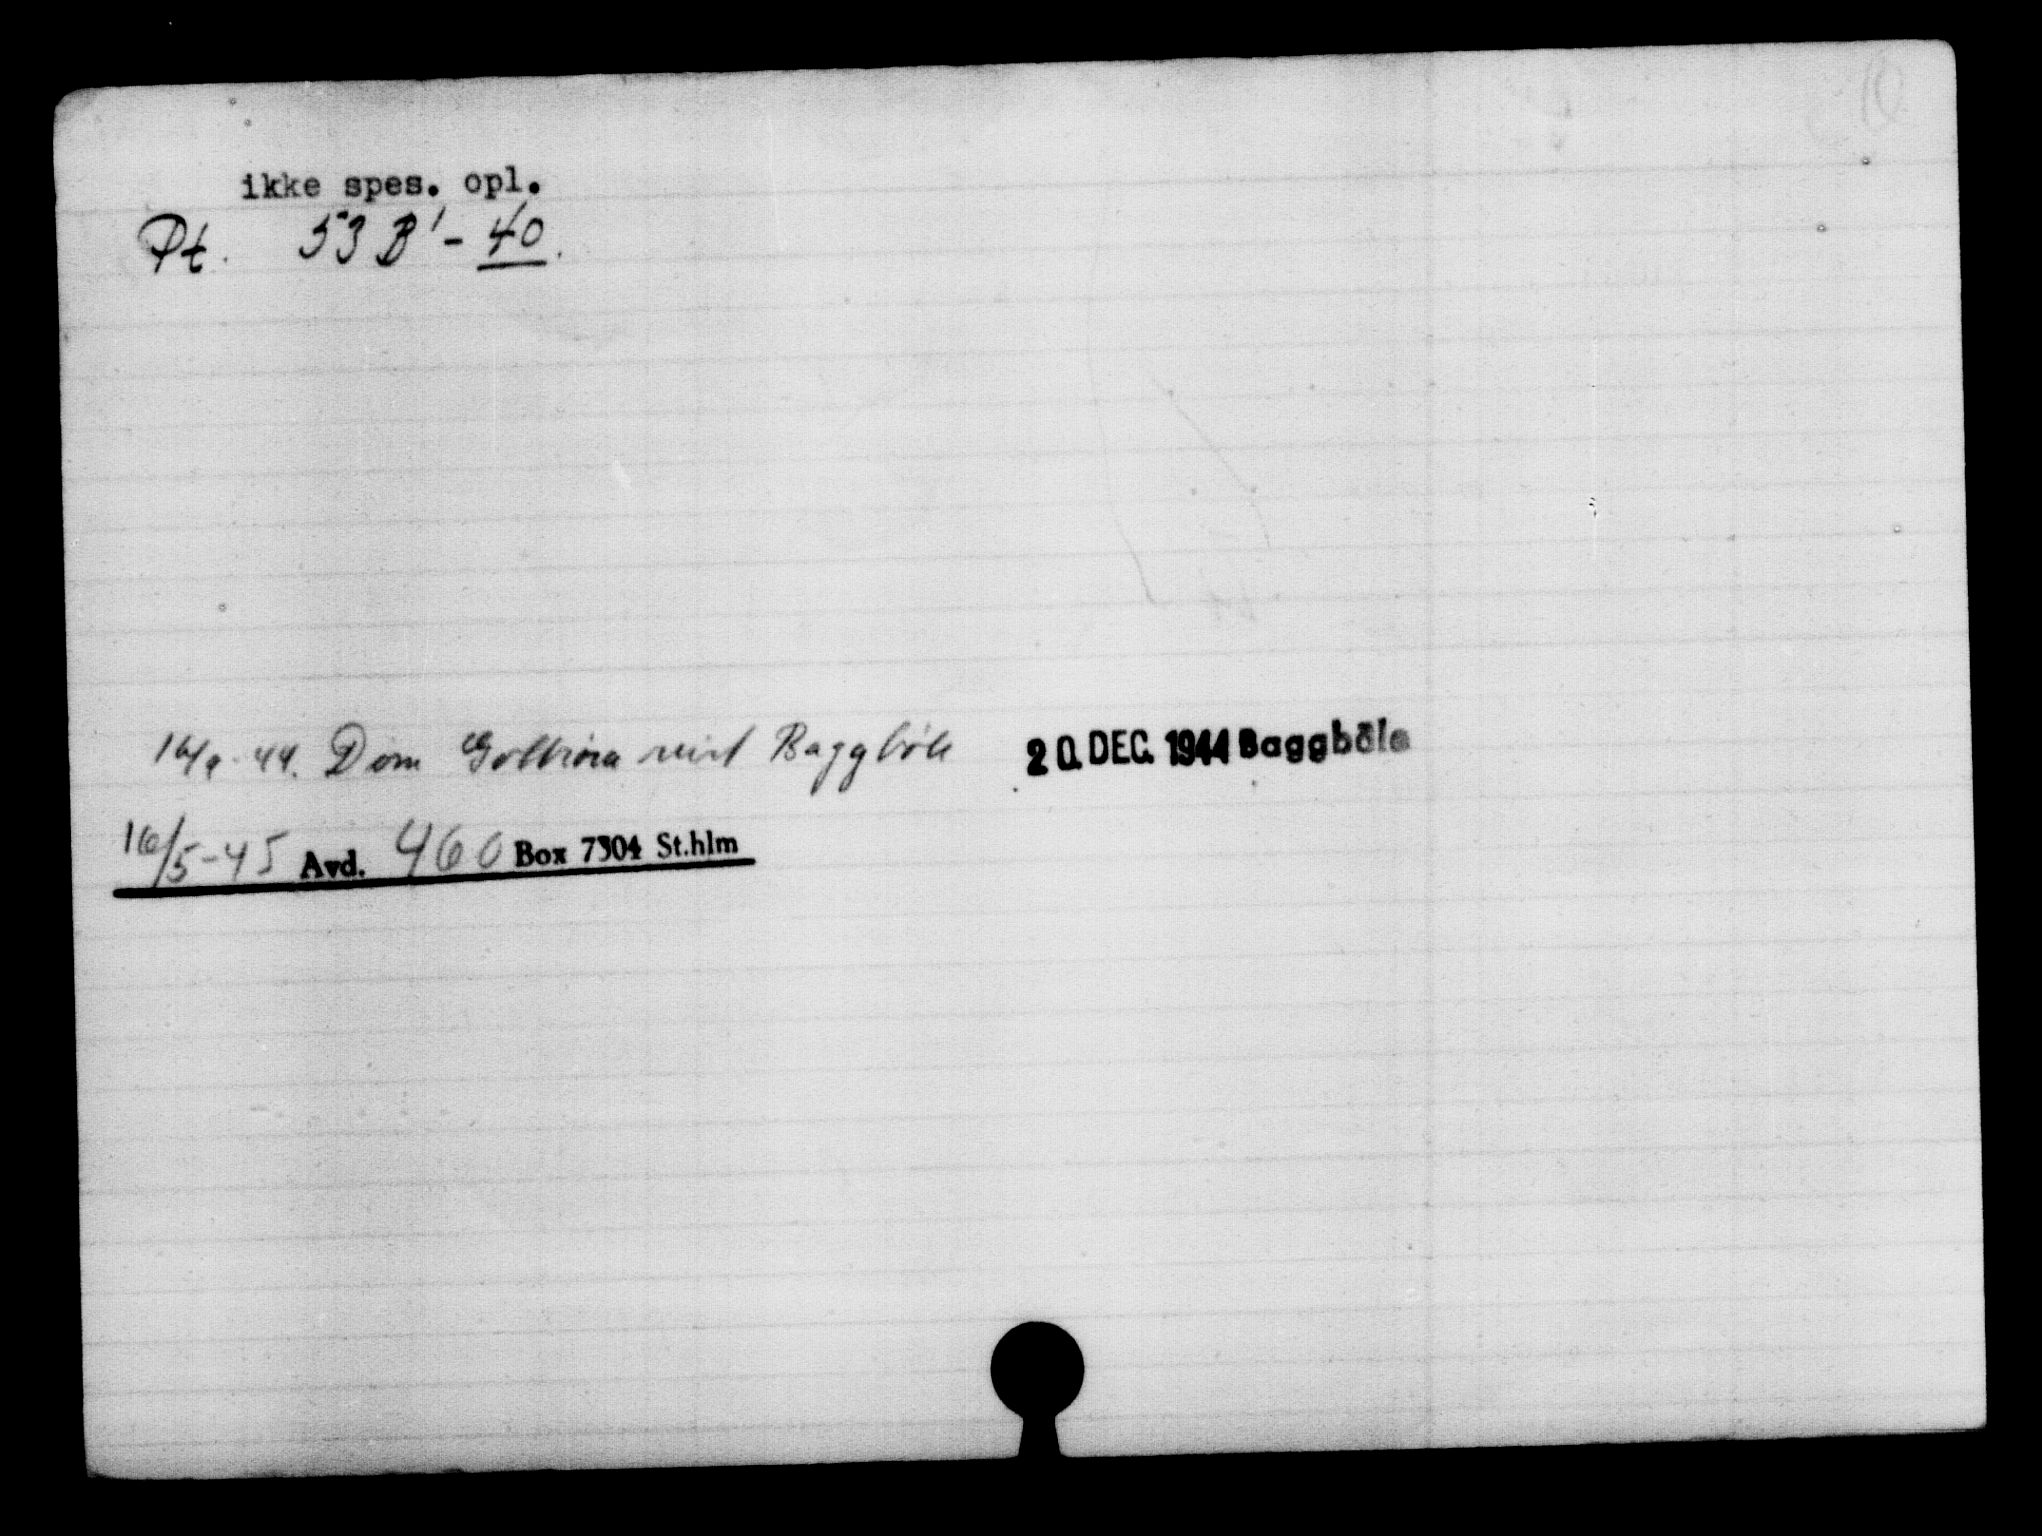 ikke spes. opl.
Pt. 53 B' - 40.
16/9-44. Dom Baggböle 20. DEC. 1944 Baggböle
16/5-45 Avd. 460 Box 7304 St.hlm